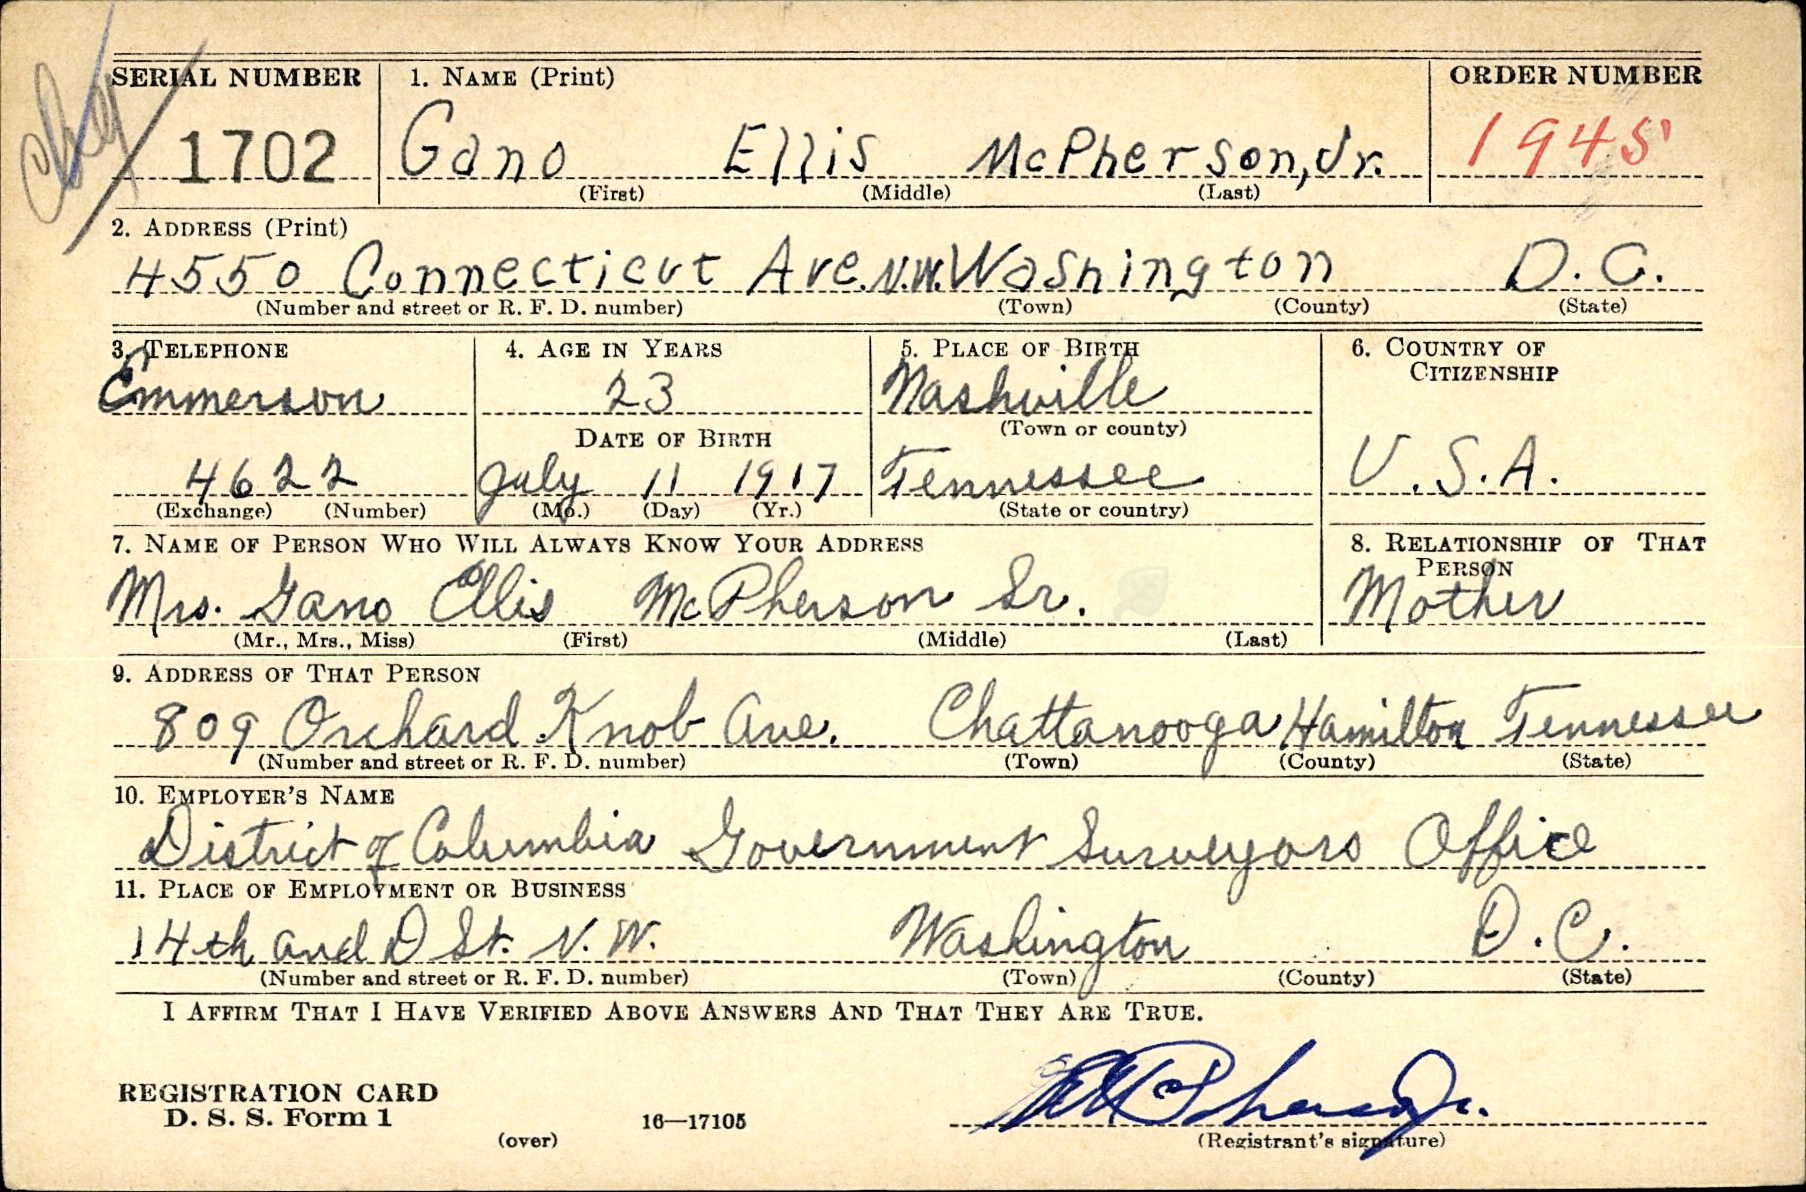 SERIAL NUMBER 1. NAME (Print) ORDER NUMBER
1702 Gano Ellis McPherson, Jr. 1945
(First) (Middle) (Last)
2. ADDRESS (Print)
4550 Connecticut Ave. N.W. Washington D. C.
(Number and street or R. F. D. number) (Town) (County) (State)
3. TELEPHONE 4. AGE IN YEARS 5. PLACE OF BIRTH 6. COUNTRY OF CITIZENSHIP
Emmerson 23 Nashville
(Town or county)
DATE OF BIRTH
4622 July 11 1917 Tennessee U.S.A.
(Exchange) (Number) (Mo.) (Day) (Yr.) (State or country)
7. NAME OF PERSON WHO WILL ALWAYS KNOW YOUR ADDRESS 8. RELATIONSHIP OF THAT PERSON
Mrs. Gano Ellis McPherson Sr. Mother
(Mr., Mrs., Miss) (First) (Middle) (Last)
9. ADDRESS OF THAT PERSON
809 Orchard Knob Ave. Chattanooga Hamilton Tennessee
(Number and street or R. F. D. number) (Town) (County) (State)
10. EMPLOYER'S NAME
District of Columbia Government Surveyors Office
11. PLACE OF EMPLOYMENT OR BUSINESS
14th and D St. N. W. Washington D. C.
(Number and street or R. F. D. number) (Town) (County) (State)
I AFFIRM THAT I HAVE VERIFIED ABOVE ANSWERS AND THAT THEY ARE TRUE.
REGISTRATION CARD
D. S. S. Form 1
(over) 16—17105
McPherson Jr.
(Registrant's signature)